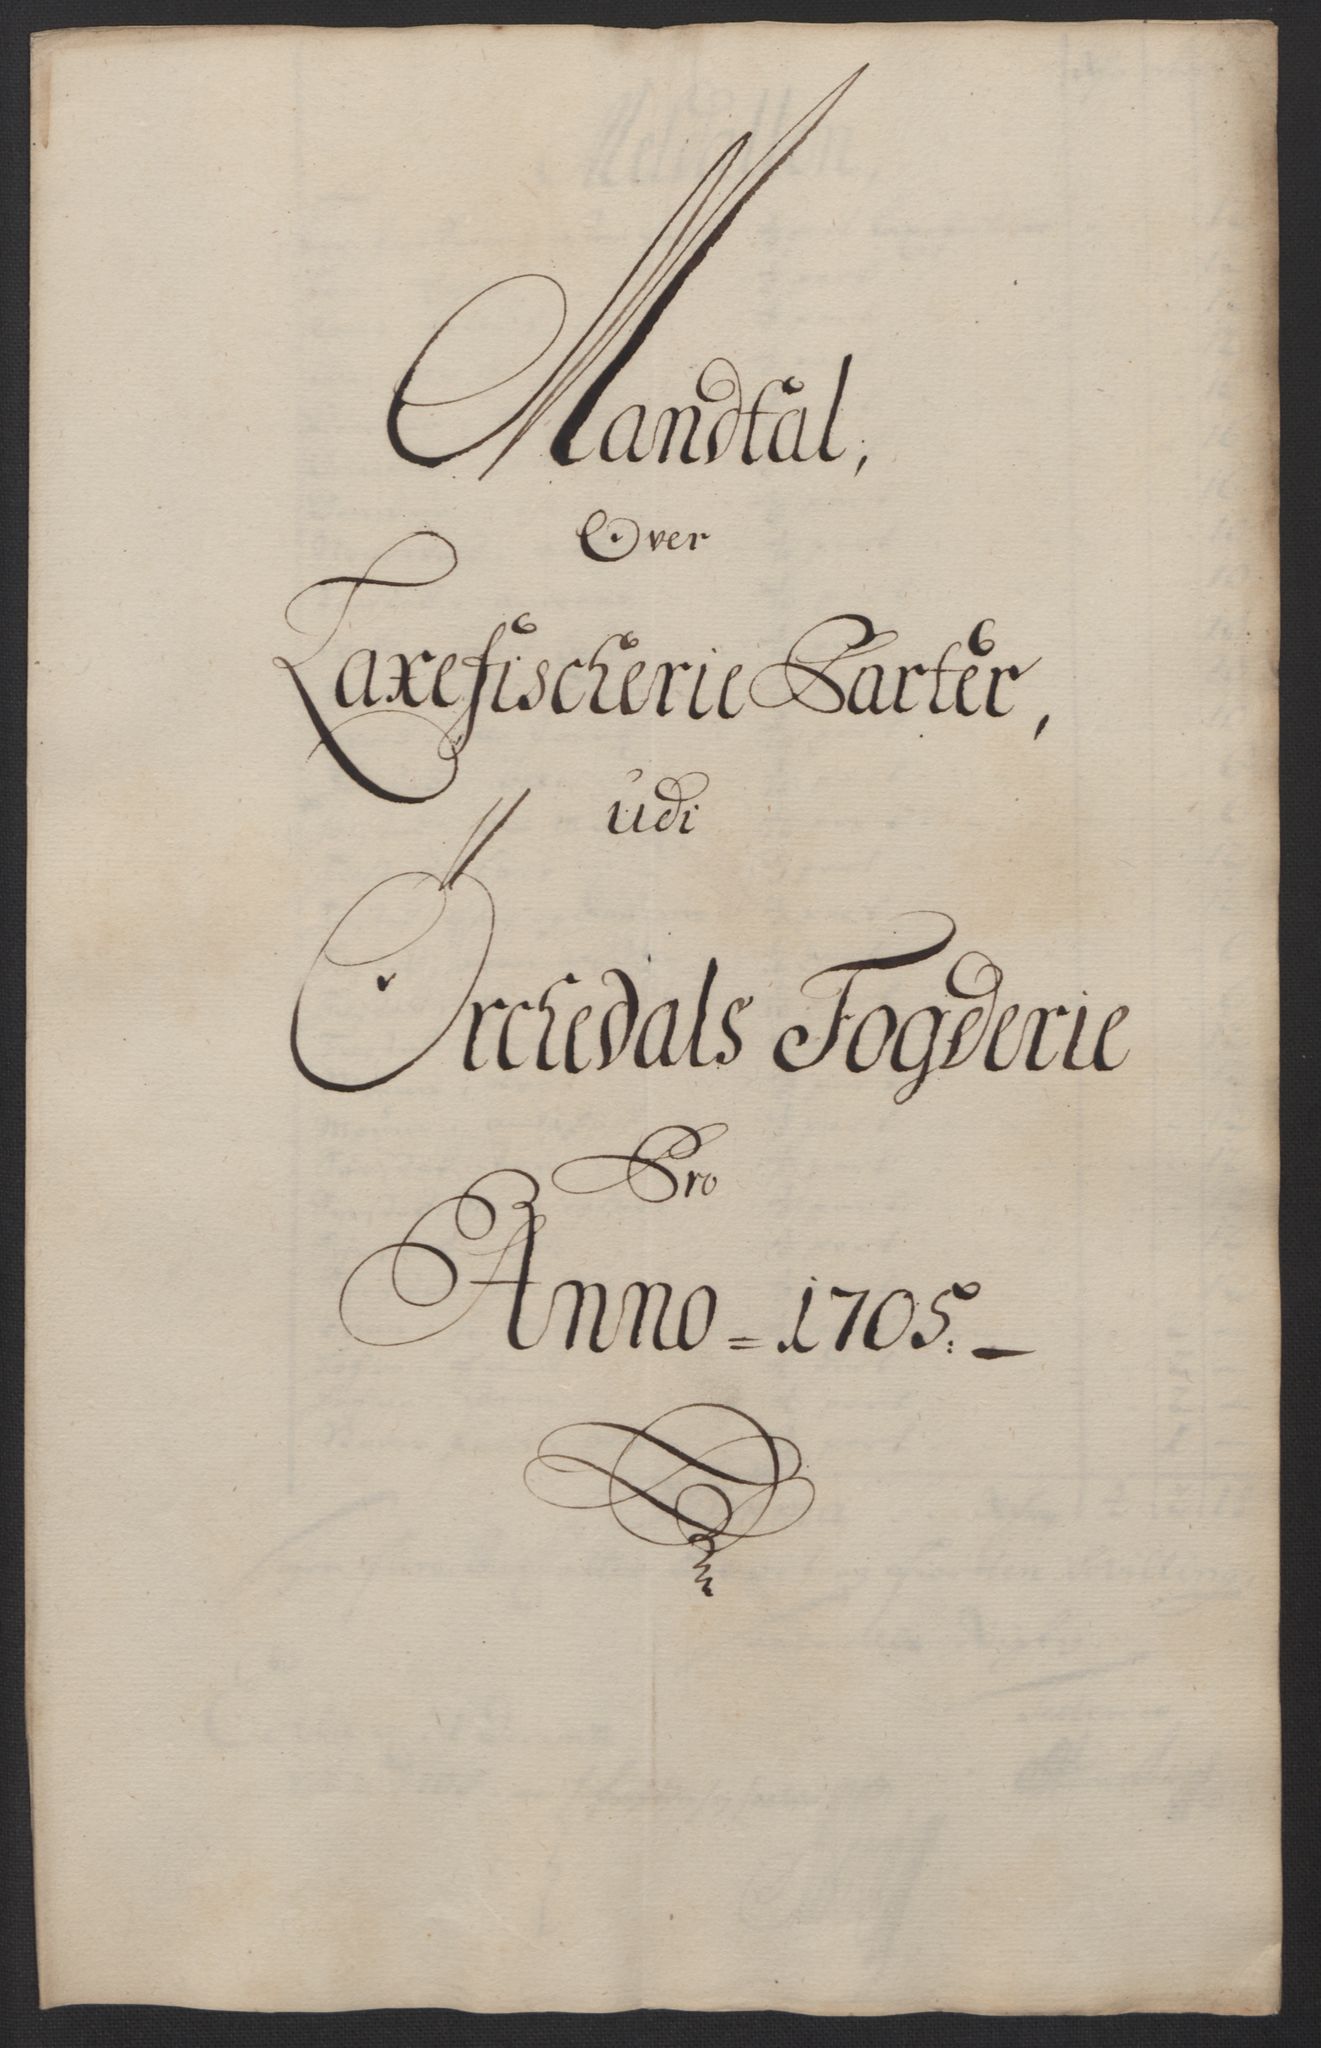 Mandtal,
Over
Laxefischerie Parter,
udi
Orchedals Fogderie
Pro
Anno = 1705. —